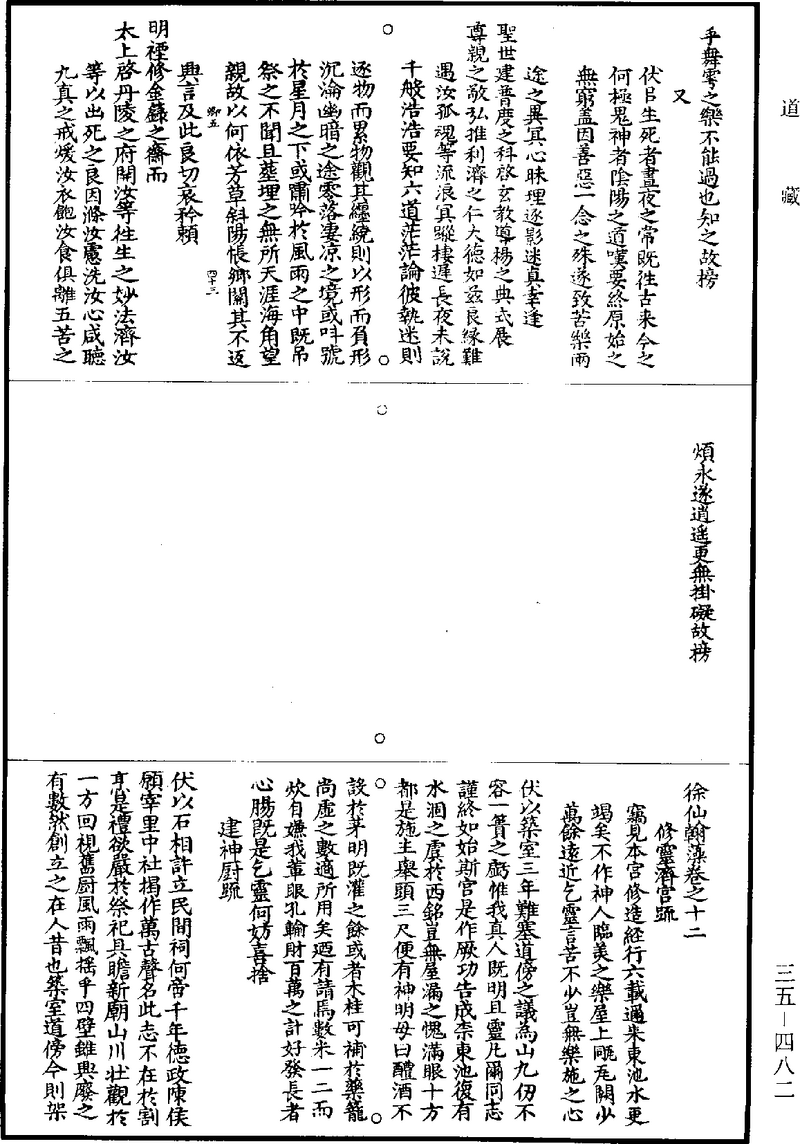 道藏
三五—四八二
乎舞雩之樂不能過也知之故榜
又
伏㠯生死者晝夜之常既往古来今之
何極鬼神者陰陽之道嘆要終原始之
無窮盖因善惡一念之殊遂致苦樂兩
途之異冥心昧理逐影迷真幸逢
聖世建普度之科啓玄教導揚之典式展
尊親之敬弘推利濟之仁大德如兹良緣難
遇汝孤魂等流浪冥蹤棲遲長夜未說
千般浩浩要知六道茫茫論彼執迷則
逐物而累物觀其纏繞則以形而負形
沉淪幽暗之途零落凄凉之境或呌號
於星月之下或肅吟於風雨之中既吊
祭之不聞且塟埋之無所天涯海角望
親故以何依芳草斜陽悵鄉關其不返
卿五
四十三
興言及此良切哀矜頼
明禋修金籙之齋而
太上啓丹陵之府開汝等徃生之妙法濟汝
等以出死之良因滌汝慮洗汝心咸聽
九真之戒煖汝衣飽汝食俱離五苦之
煩永遂逍遥更無掛礙故榜
徐仙翰藻卷之十二
修靈濟宫䟽
竊見本宫修造経行六載邇来東池水更
竭矣不作神人臨美之樂屋上颳瓦闕少
萬餘遠近乞靈言苦不少豈無樂施之心
伏以築室三年難塞道傍之議為山九仞不
容一簣之虧惟我真人既明且靈凡爾同志
謹終如始斯宫是作厥功告成柰東池復有
水涸之虞於西銘豈無屋漏之愧滿眼十方
都是施主舉頭三尺便有神明毋曰醴酒不
設於茅明既灌之餘或者木柱可補於藥籠
尚虛之數適所用矣廼有請焉數米一二而
炊自嫌我輩眼孔輸財百萬之計好發長者
心腸既是乞靈何妨喜捨
建神厨䟽
伏以石相許立民間祠何帝千年徳政陳侯
願宰里中社揭作萬古聲名此志不在於割
烹是禮欲嚴於祭祀具瞻新廟山川壮觀於
一方回視舊厨風雨飄摇乎四壁雖興廢之
有數然創立之在人昔也築室道傍今則架